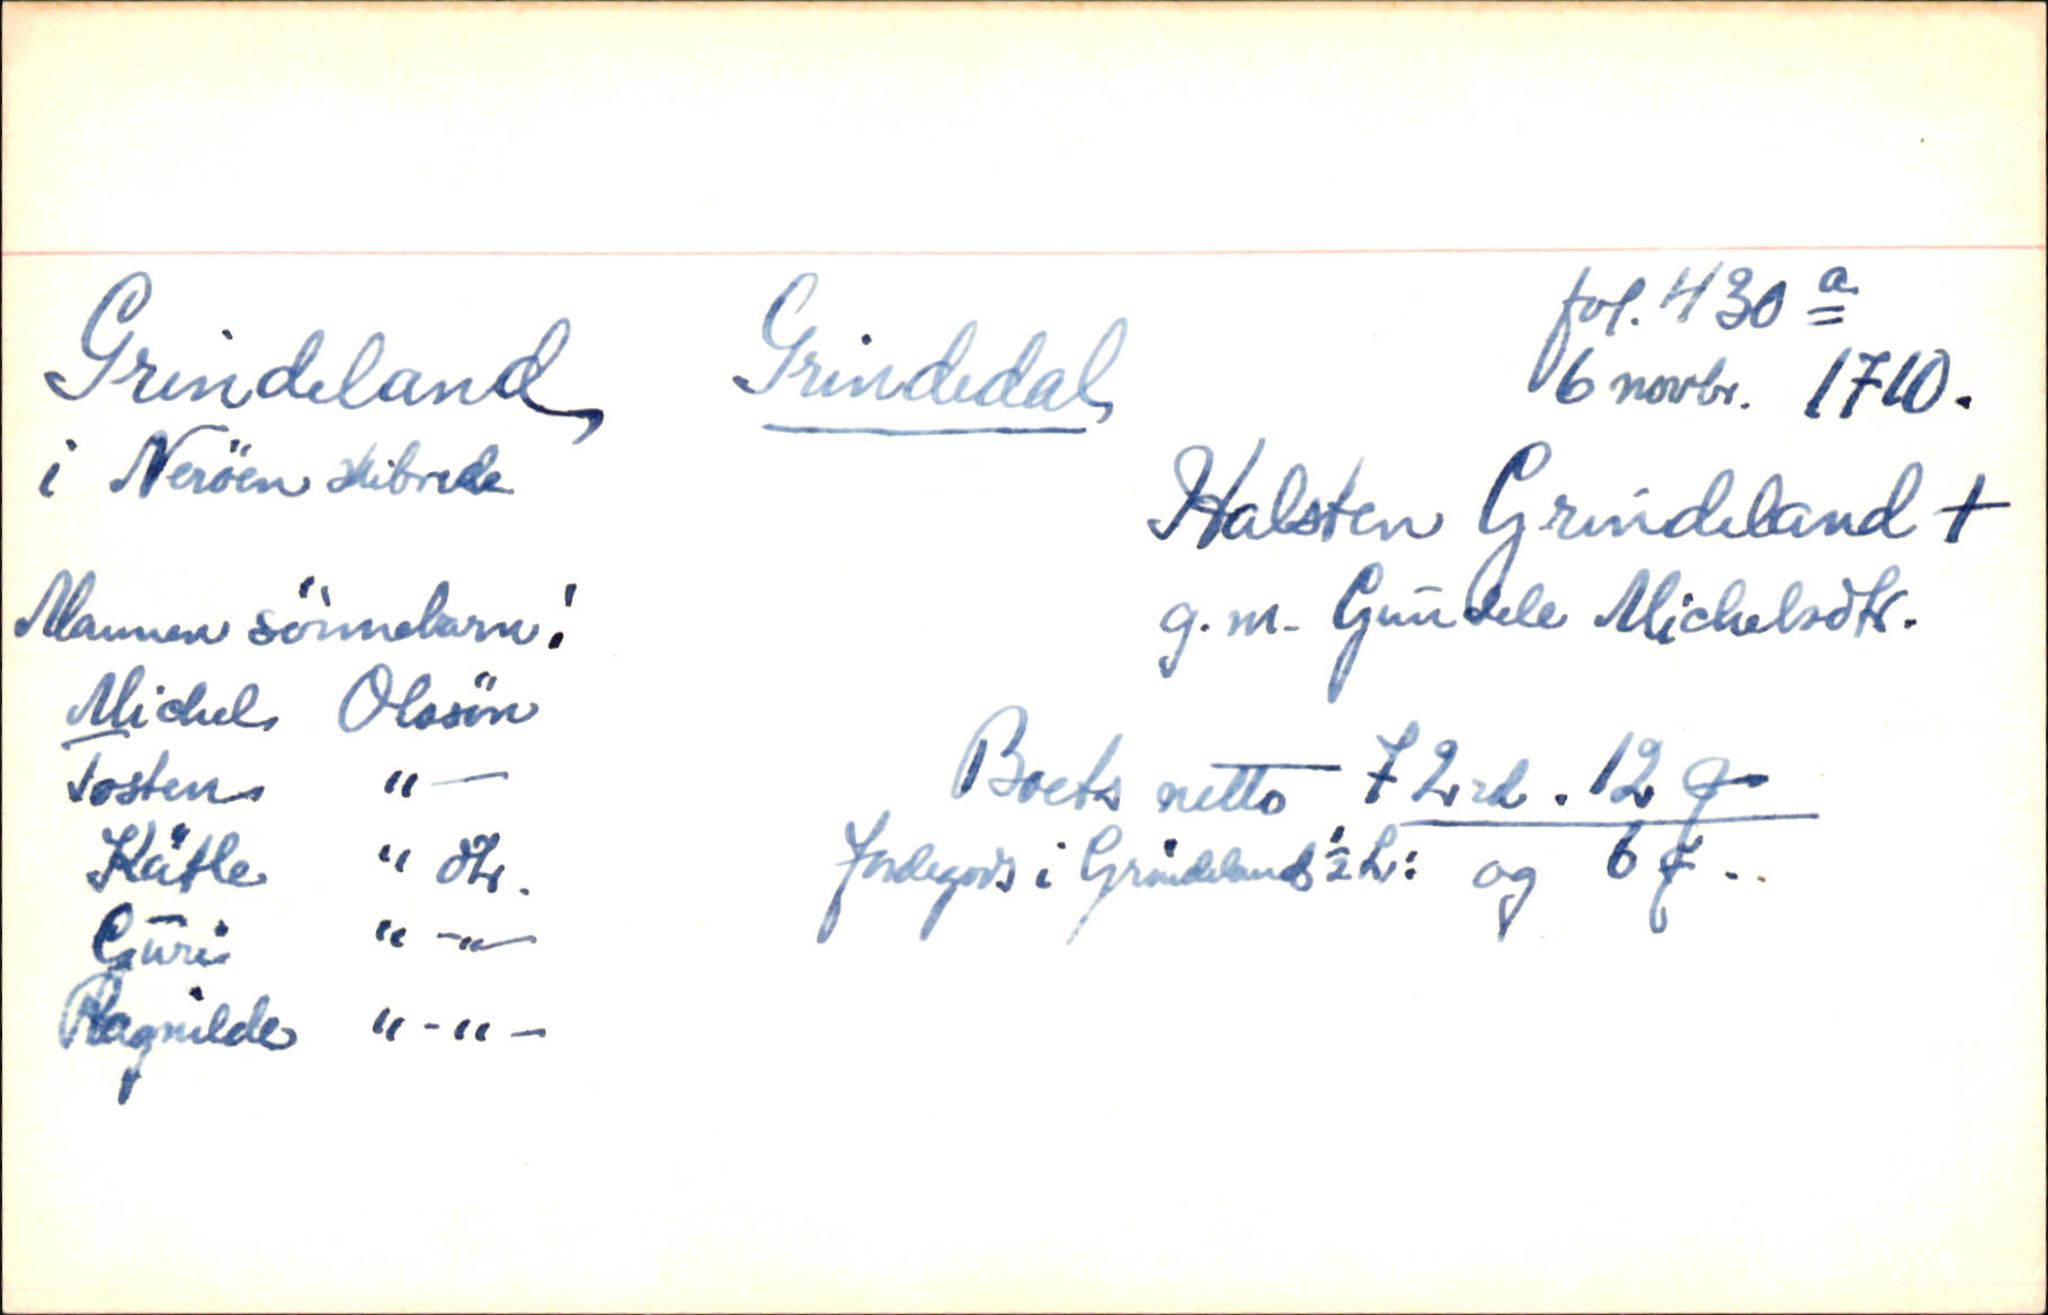 Grindeland, Grindedal,
fol. 430 a
6 novbr. 1710.
i Neröen skibrede
Halsten Grindeland +
g. m. Gundele Michelsdtr.
Mannen sönnebarn:
Michel Olssön
Tosten " —
Kätle " dtr.
Guri " - " -
Ragnilde " - " -
Boets netto 72 rd. 12 ẞ
Jordegods i Grindeland ½ L: og 6 ẞ..